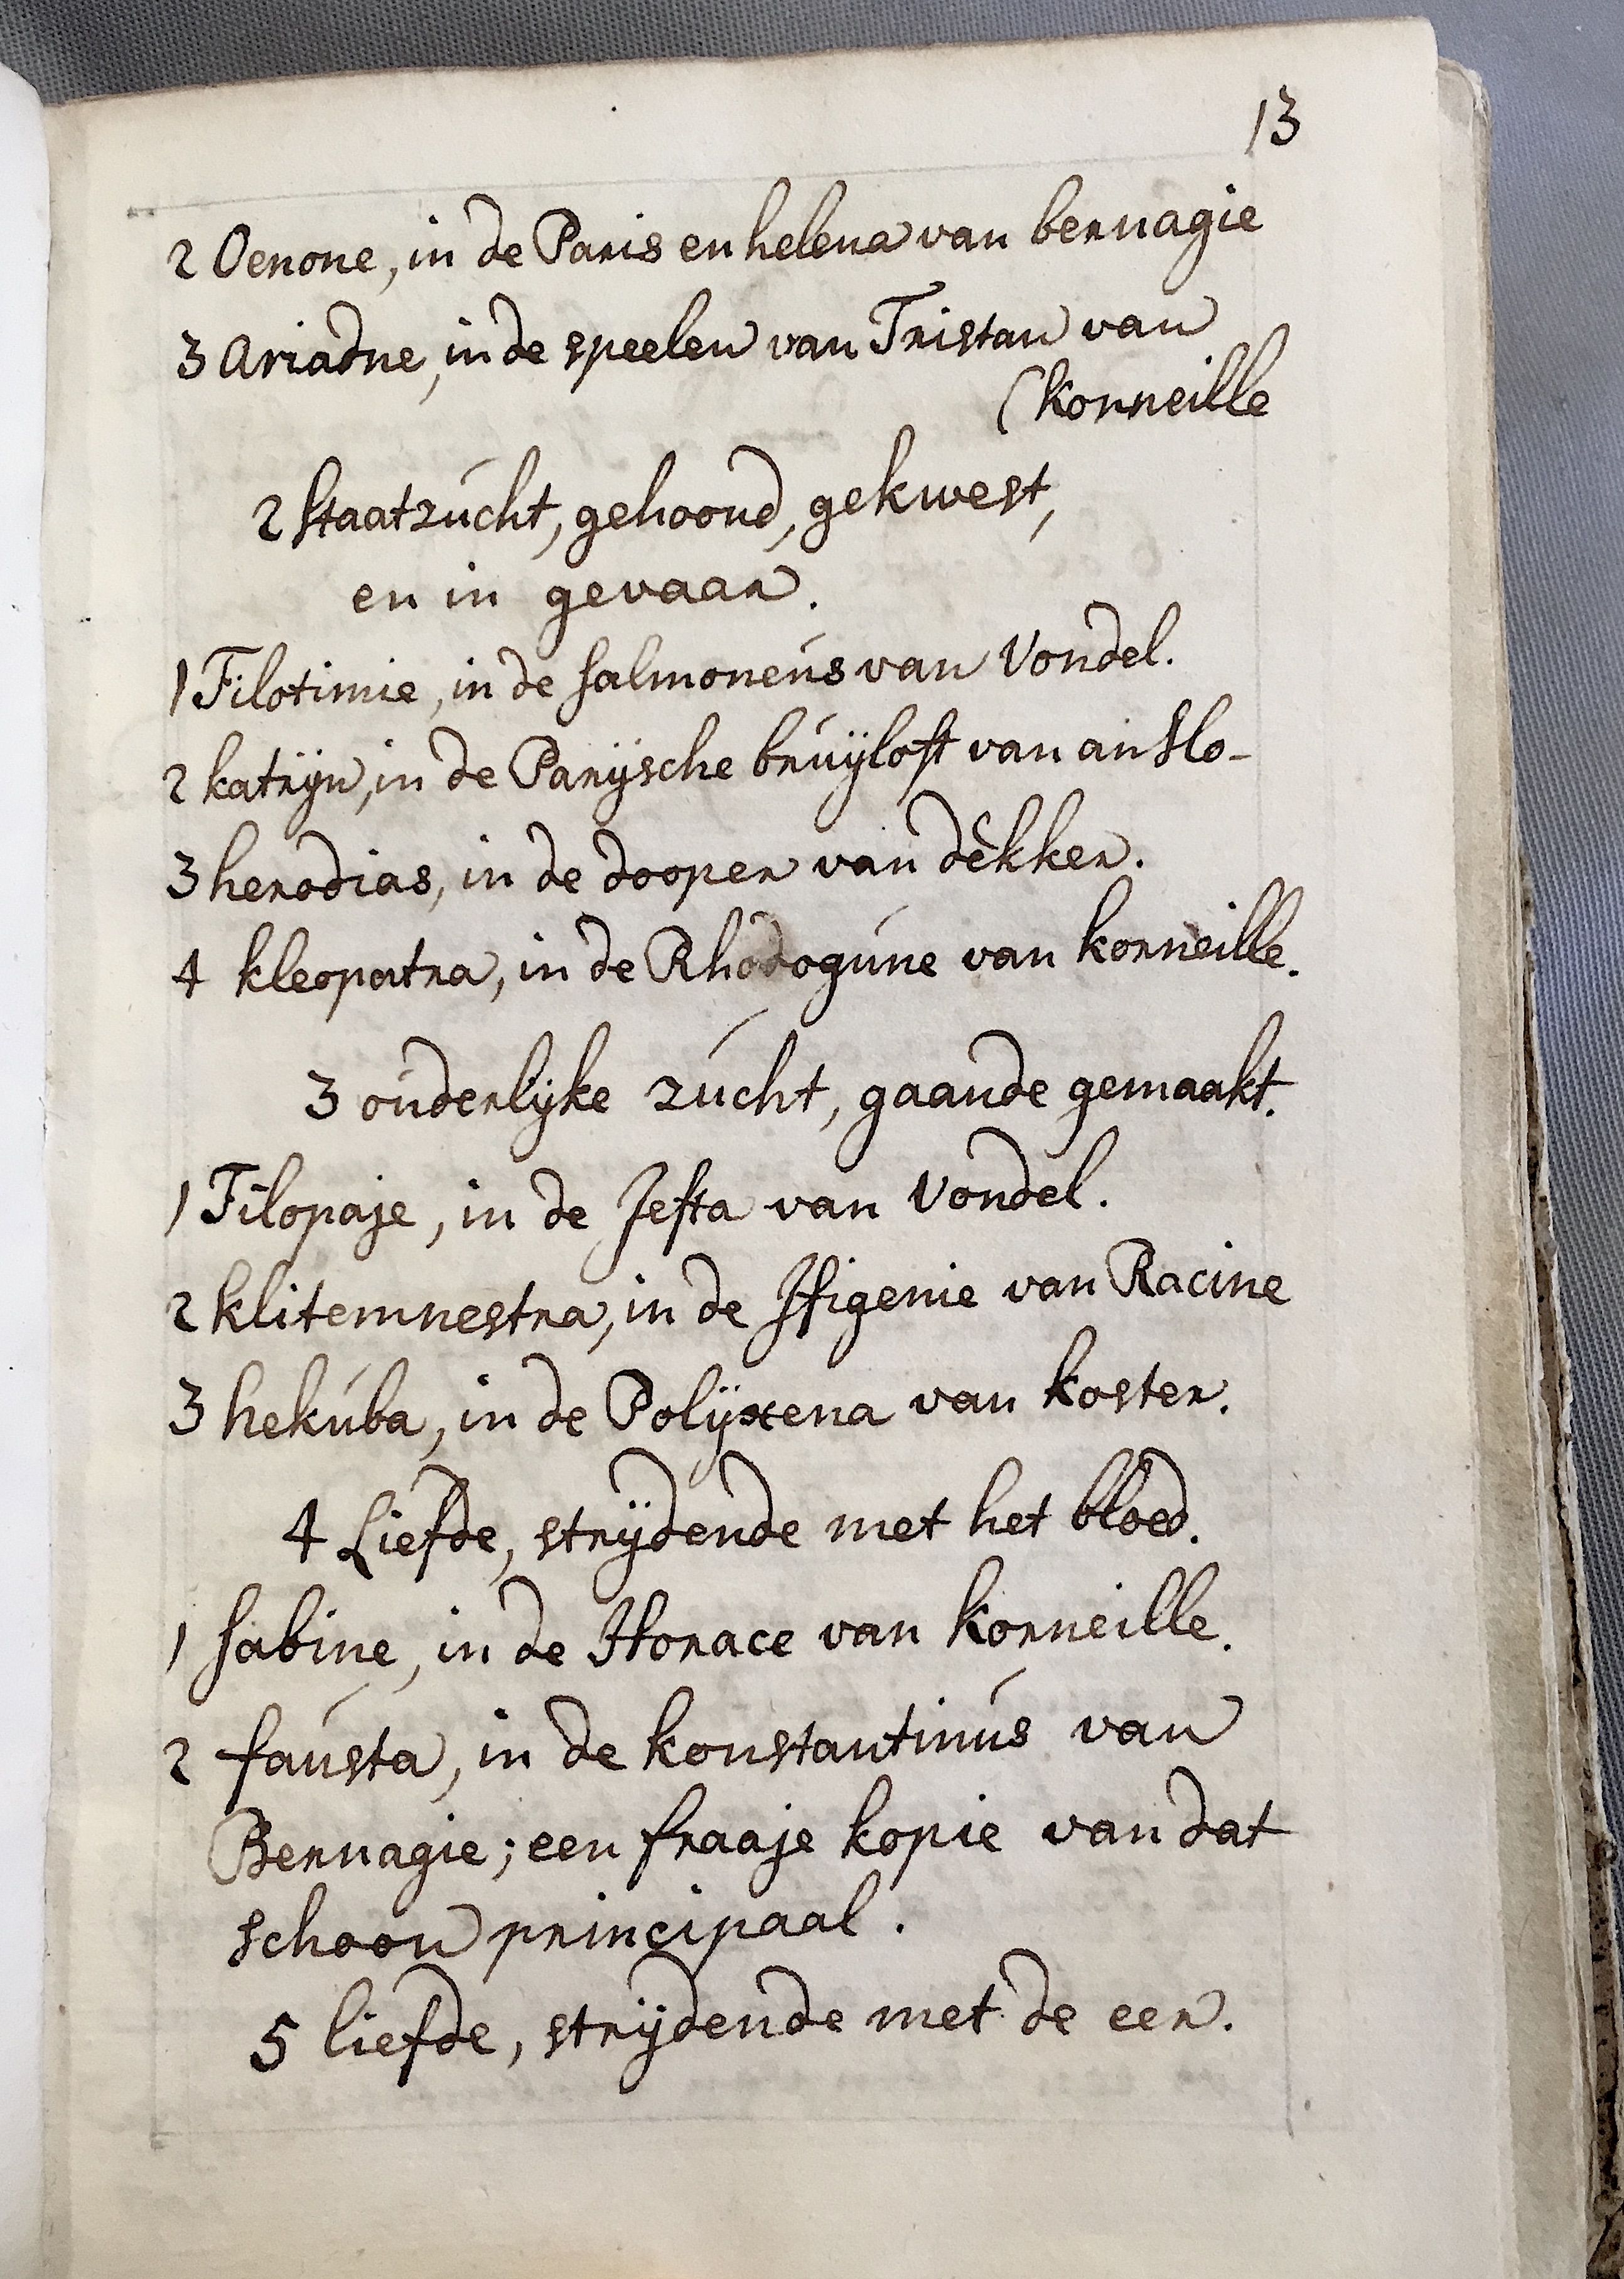 13
2 Oenone, in de Paris en helena van bernagie
3 Ariadne, in de speelen van Tristan van
(korneille
2 Staatzúcht, gehoond, gekwest,
en in gevaar.
1 Filotimie, in de Salmoneús van Vondel.
2 katrijn, in de Parijsche brúijloft van anslo-
3 herodias, in de dooper van dèkker.
4 kleopatra, in de Rhodogúne van korneille.
3 oúderlijke zúcht, gaande gemaakt.
1 Filopaje, in de Jefta van Vondel.
2 klitemnestra, in de Ifigenie van Racine
3 hekúba, in de Polÿxena van koster.
4 Liefde, strijdende met het bloed.
1 Sabine, in de Horace van korneille.
2 faústa, in de konstantinús van
Bernagie; een fraaje kopie van dat
schoon principaal.
5 liefde, strijdende met de eer.